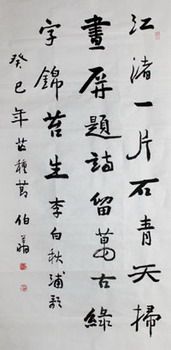 江渚一片石青天掃
畫屏題詩留萬古綠
字錦苔生李白秋浦歌
癸巳年芒種